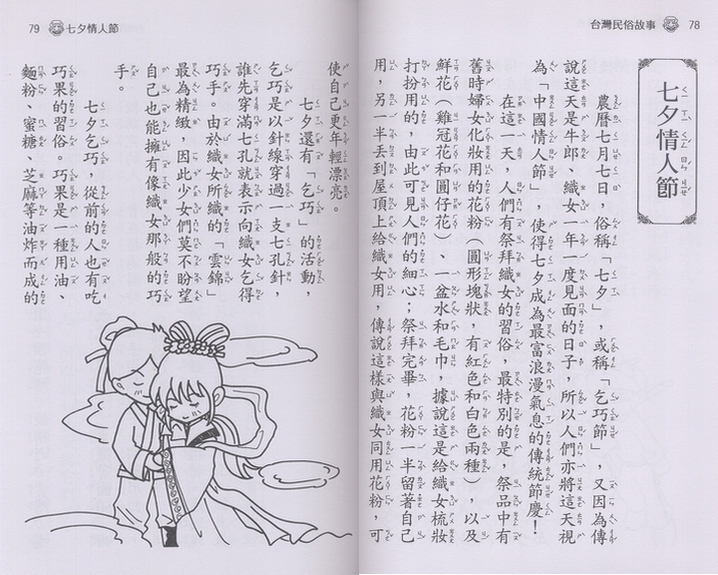 台灣民俗故事 78
七夕情人節
農曆七月七日，俗稱「七夕」，或稱「乞巧節」，又因為傳
說這天是牛郎、織女一年一度見面的日子，所以人們亦將這天視
為「中國情人節」，使得七夕成為最富浪漫氣息的傳統節慶！
在這一天，人們有祭拜織女的習俗，最特別的是，祭品中有
舊時婦女化妝用的花粉（圓形塊狀，有紅色和白色兩種），以及
鮮花（雞冠花和圓仔花）、一盆水和毛巾，據說這是給織女梳妝
打扮用的，由此可見人們的細心；祭拜完畢，花粉一半留著自己
用，另一半丟到屋頂上給織女用，傳說這樣與織女同用花粉，可
79 七夕情人節
使自己更年輕漂亮。
七夕還有「乞巧」的活動，
乞巧是以針線穿過一支七孔針，
誰先穿滿七孔就表示向織女乞得
巧手。由於織女所織的「雲錦」
最為精緻，因此少女們莫不盼望
自己也能擁有像織女那般的巧
手。
七夕乞巧，從前的人也有吃
巧果的習俗。巧果是一種用油、
麵粉、蜜糖、芝麻等油炸而成的